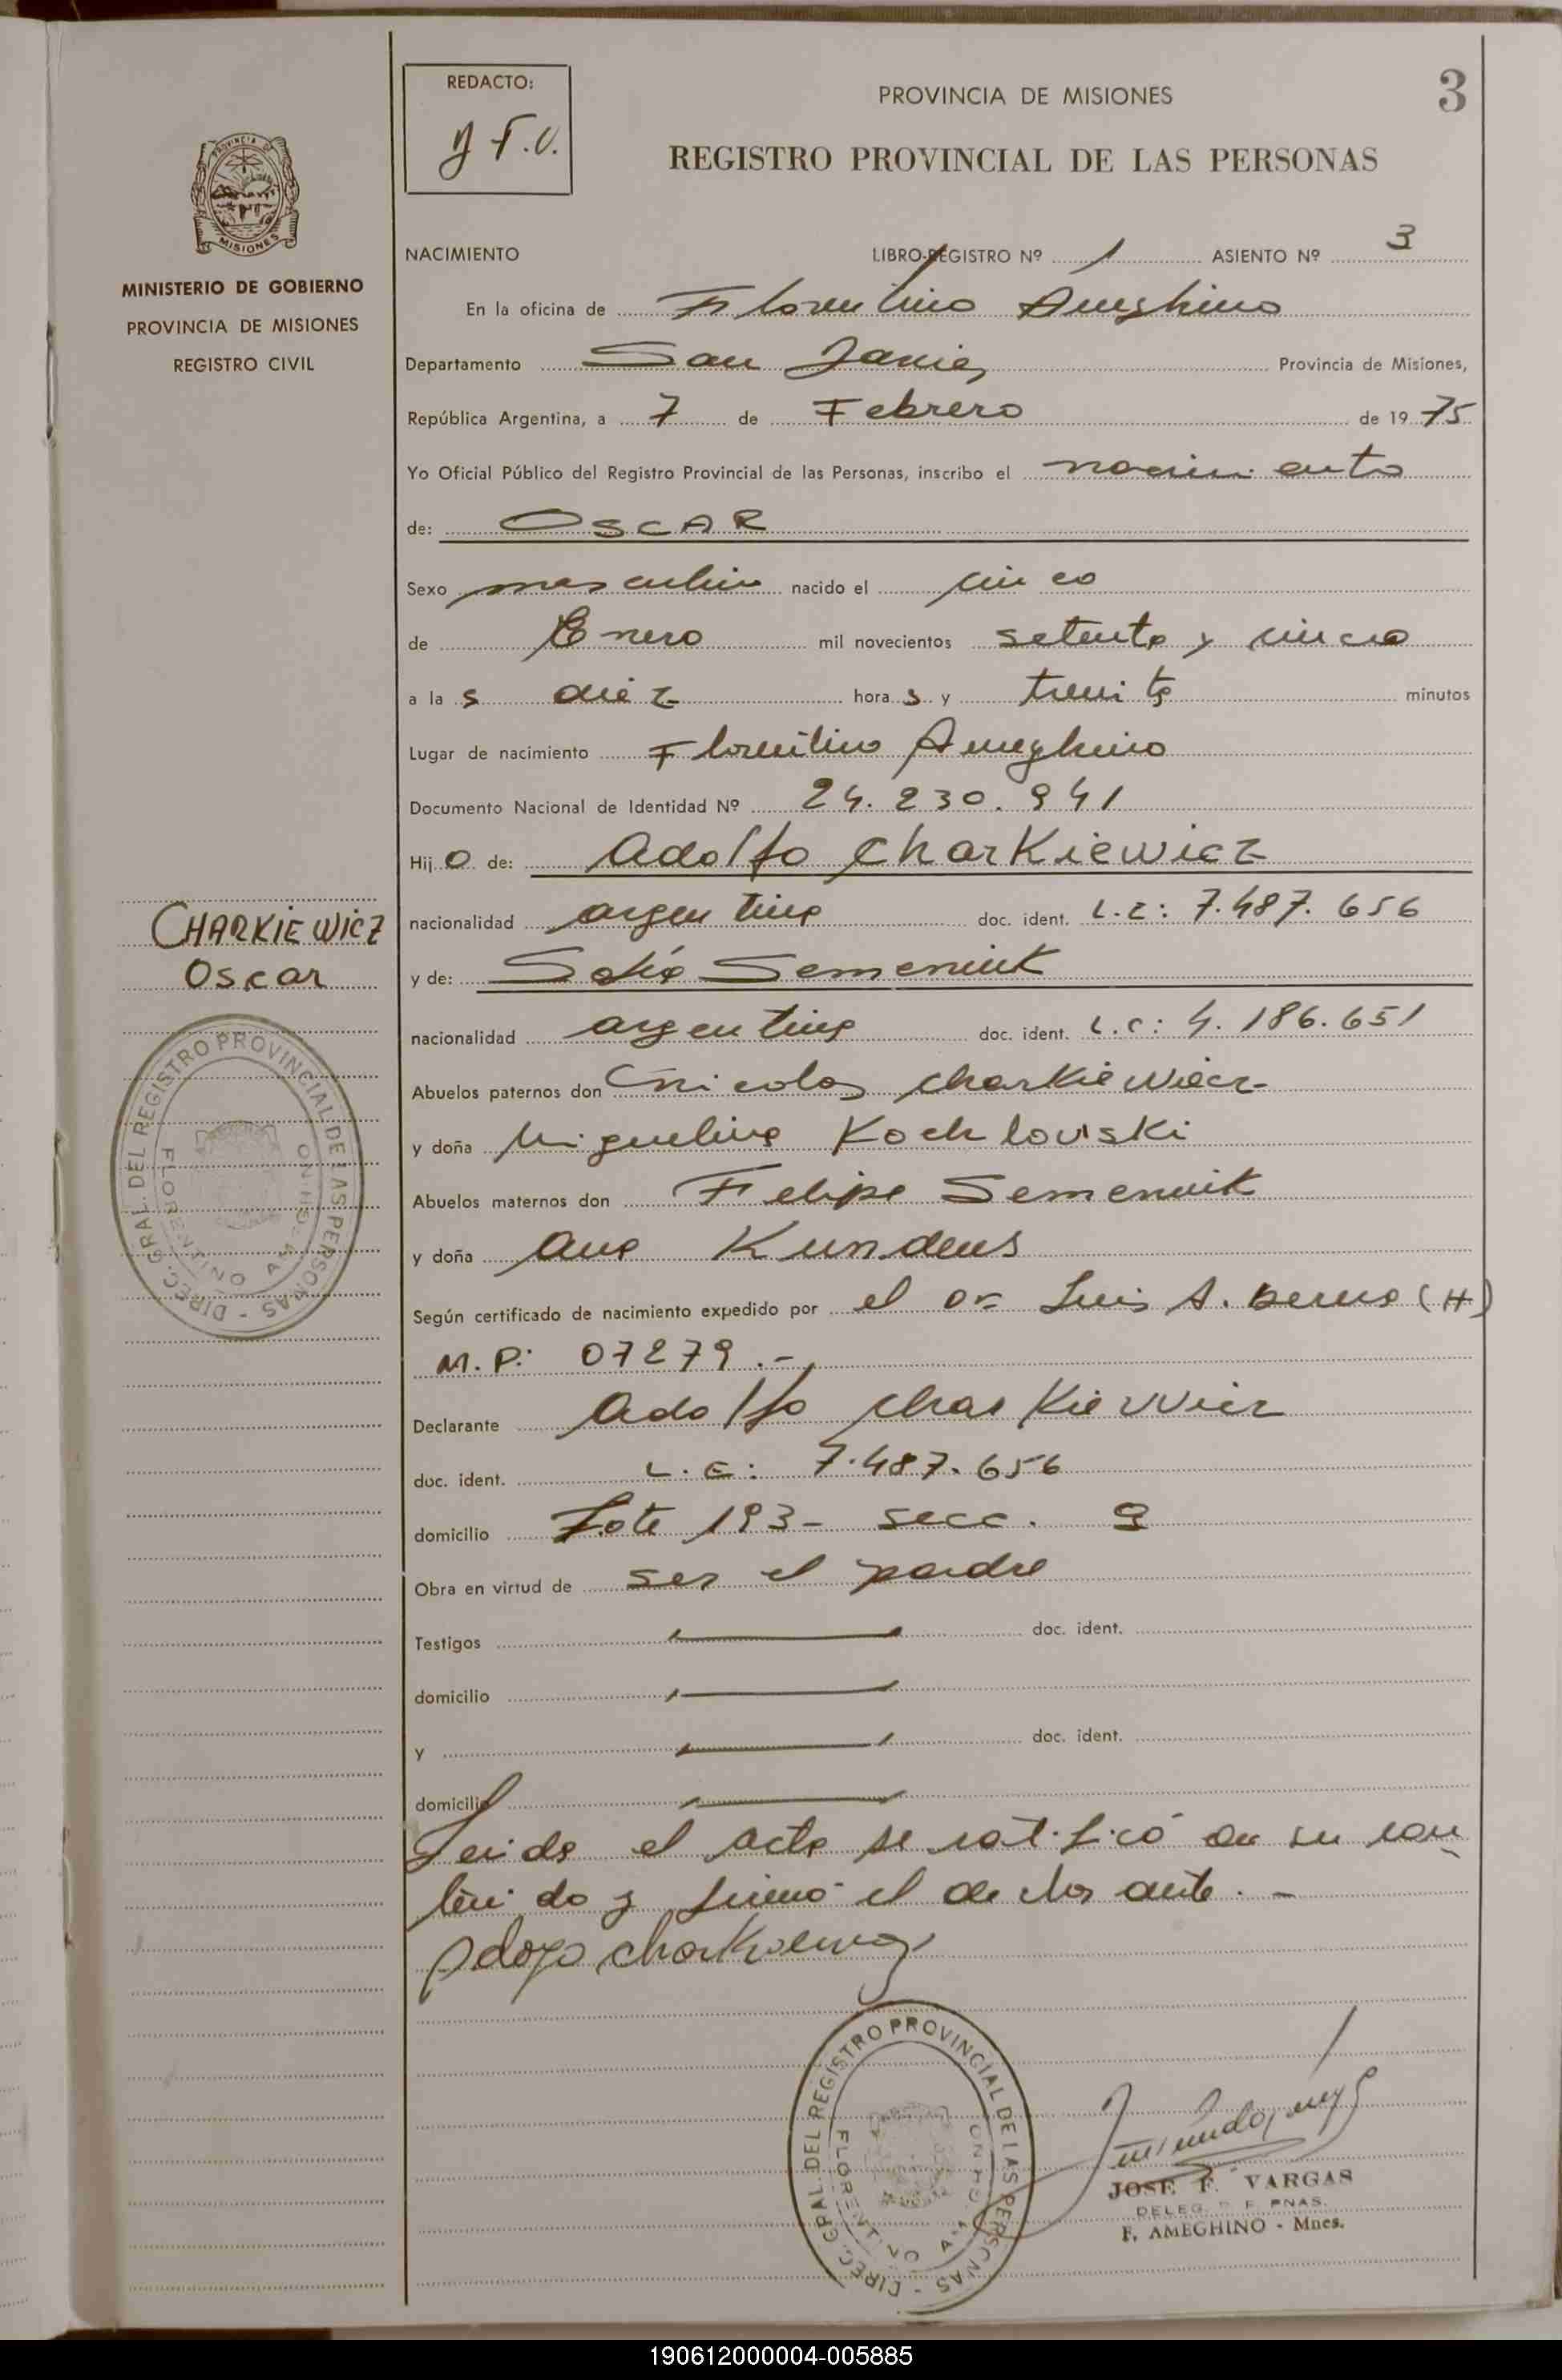 3
REDACTO:
J F.V.
PROVINCIA DE MISIONES
REGISTRO PROVINCIAL DE LAS PERSONAS
MISIONES
MINISTERIO DE GOBIERNO
PROVINCIA DE MISIONES
REGISTRO CIVIL
NACIMIENTO LIBRO-REGISTRO Nº 1 ASIENTO Nº 3
En la oficina de Florentino Ameghino
Departamento San Javier Provincia de Misiones,
República Argentina, a 7 de Febrero de 1975
Yo Oficial Público del Registro Provincial de las Personas, inscribo el nacimiento
de: OSCAR
Sexo masculino nacido el cinco
de Enero mil novecientos setenta y cinco
a las diez horas y treinta minutos
Lugar de nacimiento Florentino Ameghino
Documento Nacional de Identidad Nº 24.230.941
Hijo de: Adolfo CharKiewicz
nacionalidad argentina doc. ident. L.E: 7.487.656
CHARKIEWICZ
Oscar
y de: Sofía Semeniuk
nacionalidad argentina doc. ident. L.C: 4.186.651
Abuelos paternos don Nicolas Charkiewicz
y doña Miguelina Kochlowski
Abuelos maternos don Felipe Semeniuk
y doña Ana Kundeus
Según certificado de nacimiento expedido por el Dr Luis A. (H)
M.P: 07279.-
Declarante Adolfo CharKiewicz
doc. ident. L.E: 7.487.656
domicilio Lote 193- secc. 9
Obra en virtud de ser el padre
Testigos doc. ident.
domicilio
y doc. ident.
domicilio
Leida el acta se ratificó en su con
tenido y firmó el declarante.-
DIREC. GRAL. DEL REGISTRO PROVINCIAL DE LAS PERSONAS - FLORENTINO AMEGHINO
DIREC. GRAL. DEL REGISTRO PROVINCIAL DE LAS PERSONAS - FLORENTINO
JOSE F. VARGAS
DELEG. R. P. PNAS.
F. AMEGHINO - Mnes.
190612000004-005885